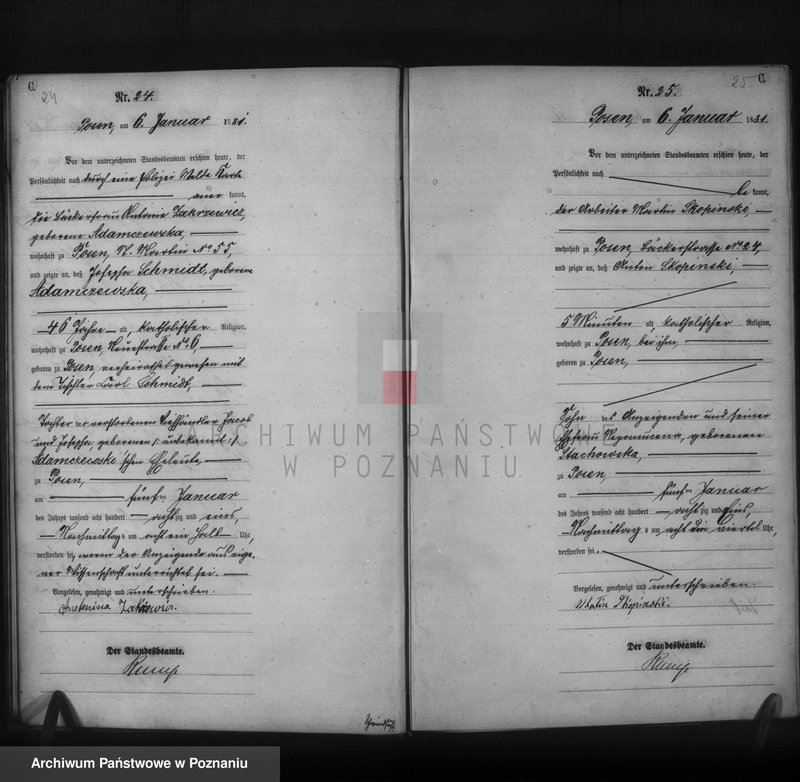 C.
24
Nr. 24.
Posen, am 6. Januar 1881.
Vor dem unterzeichneten Standesbeamten erschien heute, der
Persönlichkeit nach durch eine Polizei Melde Karte
aner kannt,
die Bäckerfrau Antonie Zakrzewicz,
geborene Adamczewska,
wohnhaft zu Posen, St. Martin No 55,
und zeigte an, daß Josepha Schmidt, geborene
Adamczewska,
46 Jahre alt, katholischer Religion,
wohnhaft zu Posen, Neuestraße No 6,
geboren zu Posen, verheirathet gewesen mit
dem Tischler Carl Schmidt,
Tochter der verstorbenen Viehhändler Jacob
und Josepha, geborenen /: unbekannt :/
Adamczewski'schen Eheleute,
zu Posen,
am fünften Januar
des Jahres tausend acht hundert achtzig und eins,
Nachmittags um acht ein halb Uhr,
verstorben sei, wovon der Anzeigende aus eige-
ner Wissenschaft unterrichtet sei.
Vorgelesen, genehmigt und unterschrieben.
Antonina
Der Standesbeamte.
C.
25
Nr. 25.
Posen, am 6. Januar 1881.
Vor dem unterzeichneten Standesbeamten erschien heute, der
Persönlichkeit nach
be kannt,
der Arbeiter Martin Skopinski,
wohnhaft zu Posen, Bäckerstrasse No 24,
und zeigte an, daß Anton Skopinski,
5 Minuten alt, katholischer Religion,
wohnhaft zu Posen, bei ihm,
geboren zu Posen,
Sohn des Anzeigenden und seiner
Ehefrau Nepomucena, geborenen
Stachowska,
zu Posen,
am fünften Januar
des Jahres tausend acht hundert achtzig und Eins,
Nachmittags um acht drei viertel Uhr,
verstorben sei.
Vorgelesen, genehmigt und unterschrieben.
Der Standesbeamte.
ARCHIWUM PAŃSTWOWE
W POZNANIU
Archiwum Państwowe w Poznaniu